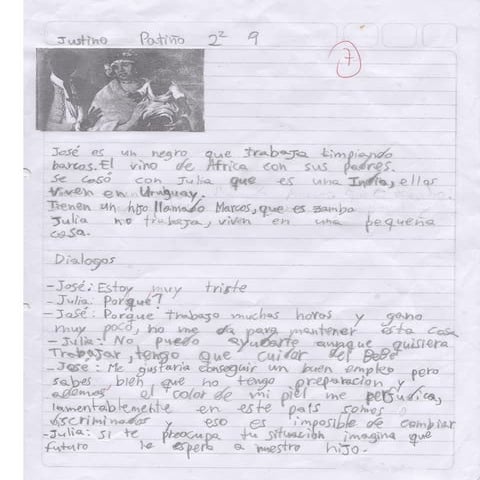 Justino Patiño 2² 9
7
José es un negro que trabaja limpiando
barcos. El vino de Africa con sus padres.
Se casó con Julia que es una India, ellos
viven en Uruguay.
Tienen un hijo llamado Marcos, que es zambo
Julia no trabaja, viven en una pequeña
casa.
Dialogos
- José: Estoy muy triste
- Julia: Porque?
- José: Porque trabajo muchas horas y gano
muy poco, no me da para mantener esta casa
- Julia: No puedo ayudarte aunque quisiera
Trabajar, tengo que cuidar del Bebé
- José: Me gustaria conseguir un buen empleo pero
sabes bien que no tengo preparacion y
ademas el color de mi piel me perjudica,
lamentablemente en este pais somos
discriminados y eso es imposible de cambiar
- Julia: si te preocupa tu situacion imagina que
futuro le espera a nuestro hijo.